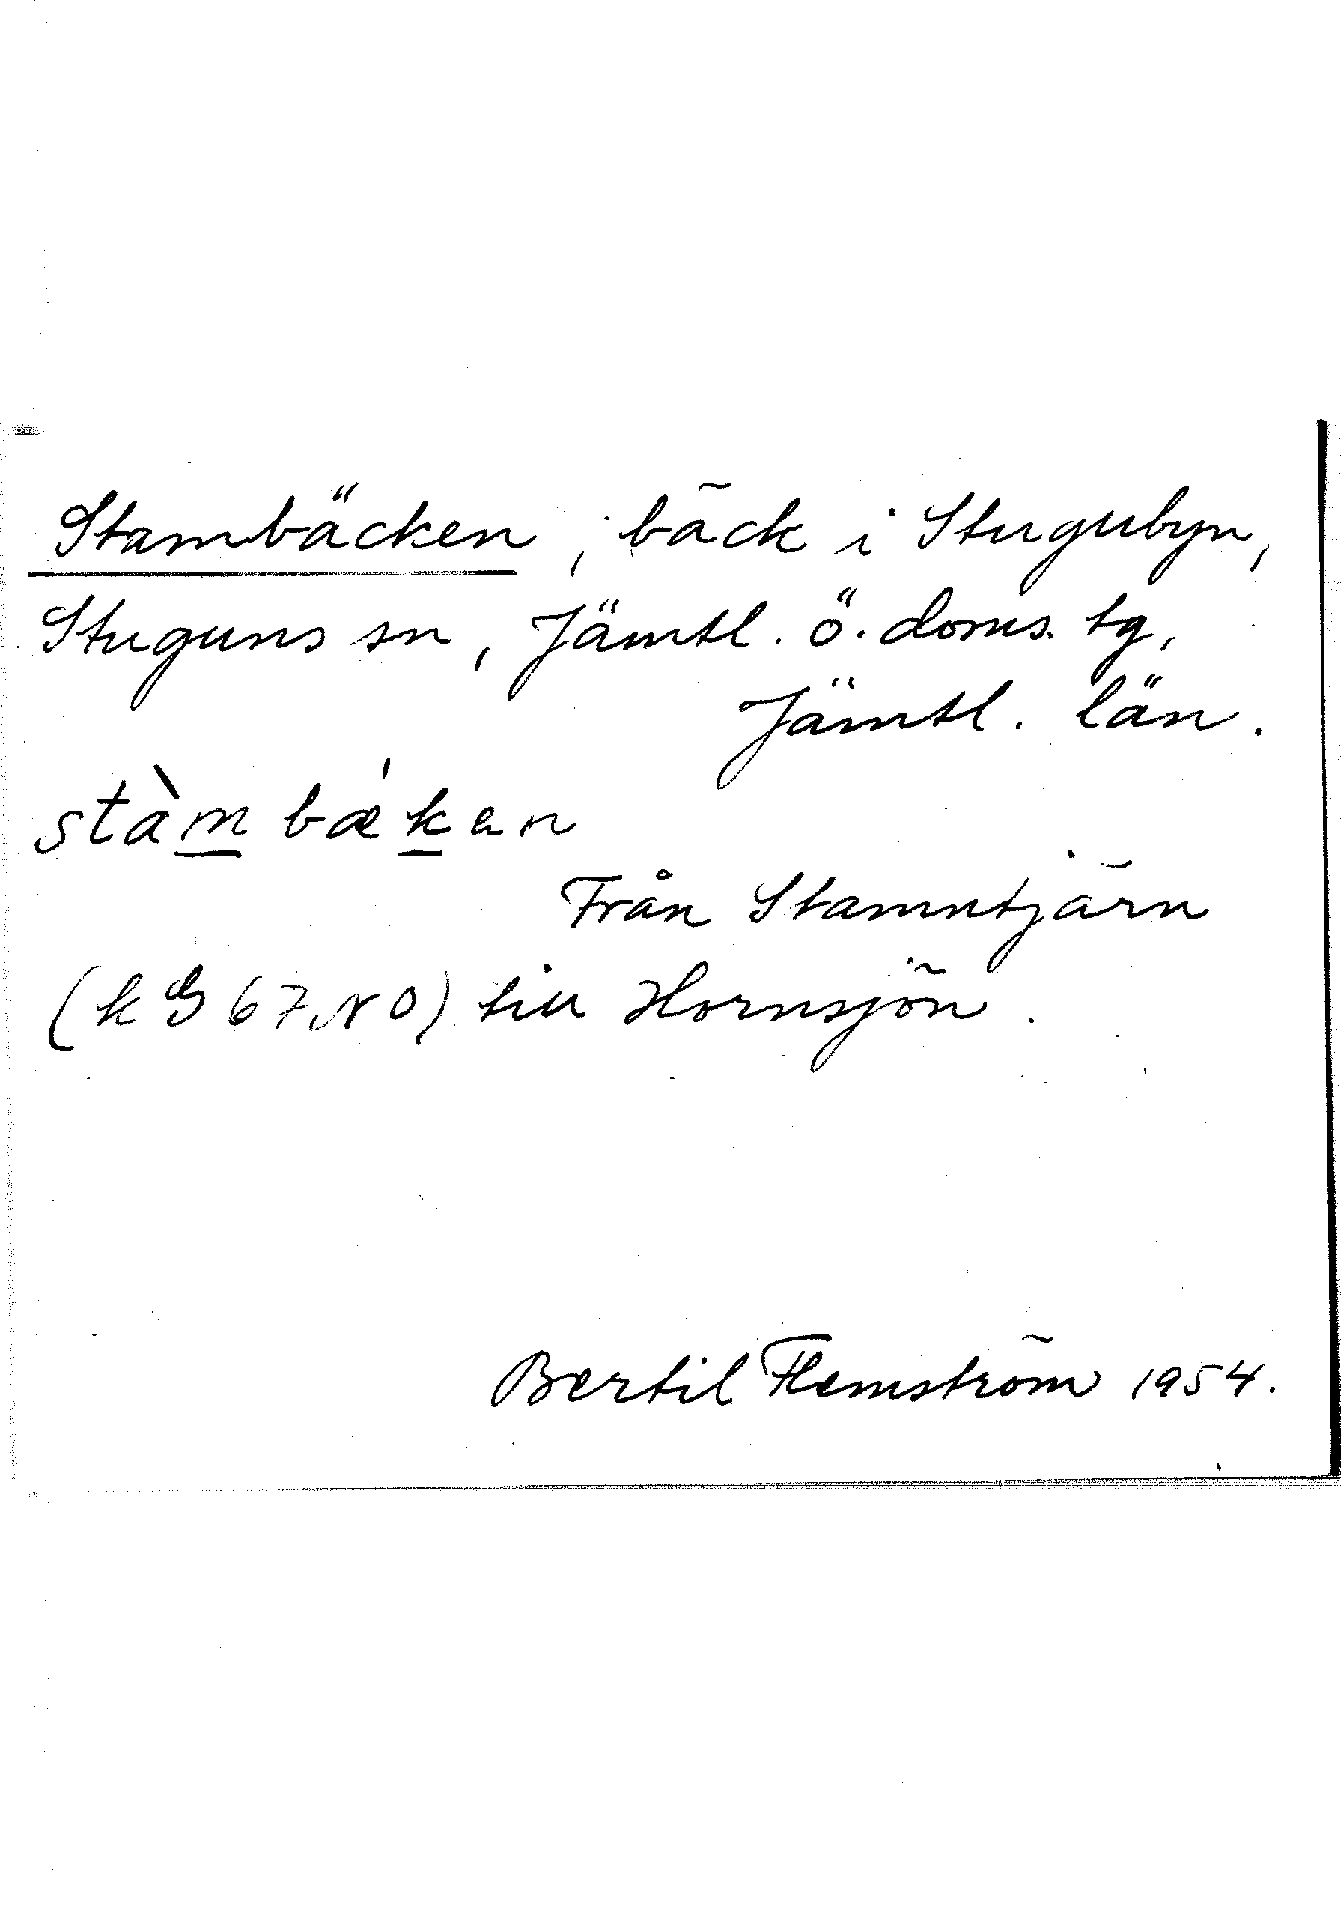 Stambäcken, bäck i Stugubyn,
Stuguns sn, Jämtl. ö. doms. tg,
Jämtl. län.
stàm bǽkan
Från Stamntjärn
(kG 67 NO) till Hornsjön.
Bertil Flemström 1954.